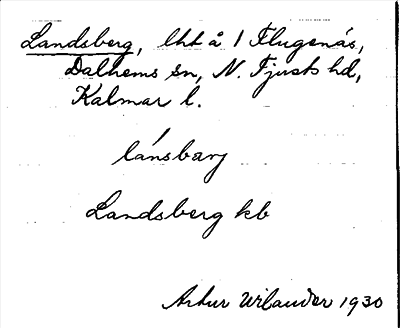 Landsberg, lht å 1 Flugenäs,
Dalhems sn, N. Tjusts hd,
Kalmar l.
lánsbarj
Landsberg kb
Artur Wilander 1930